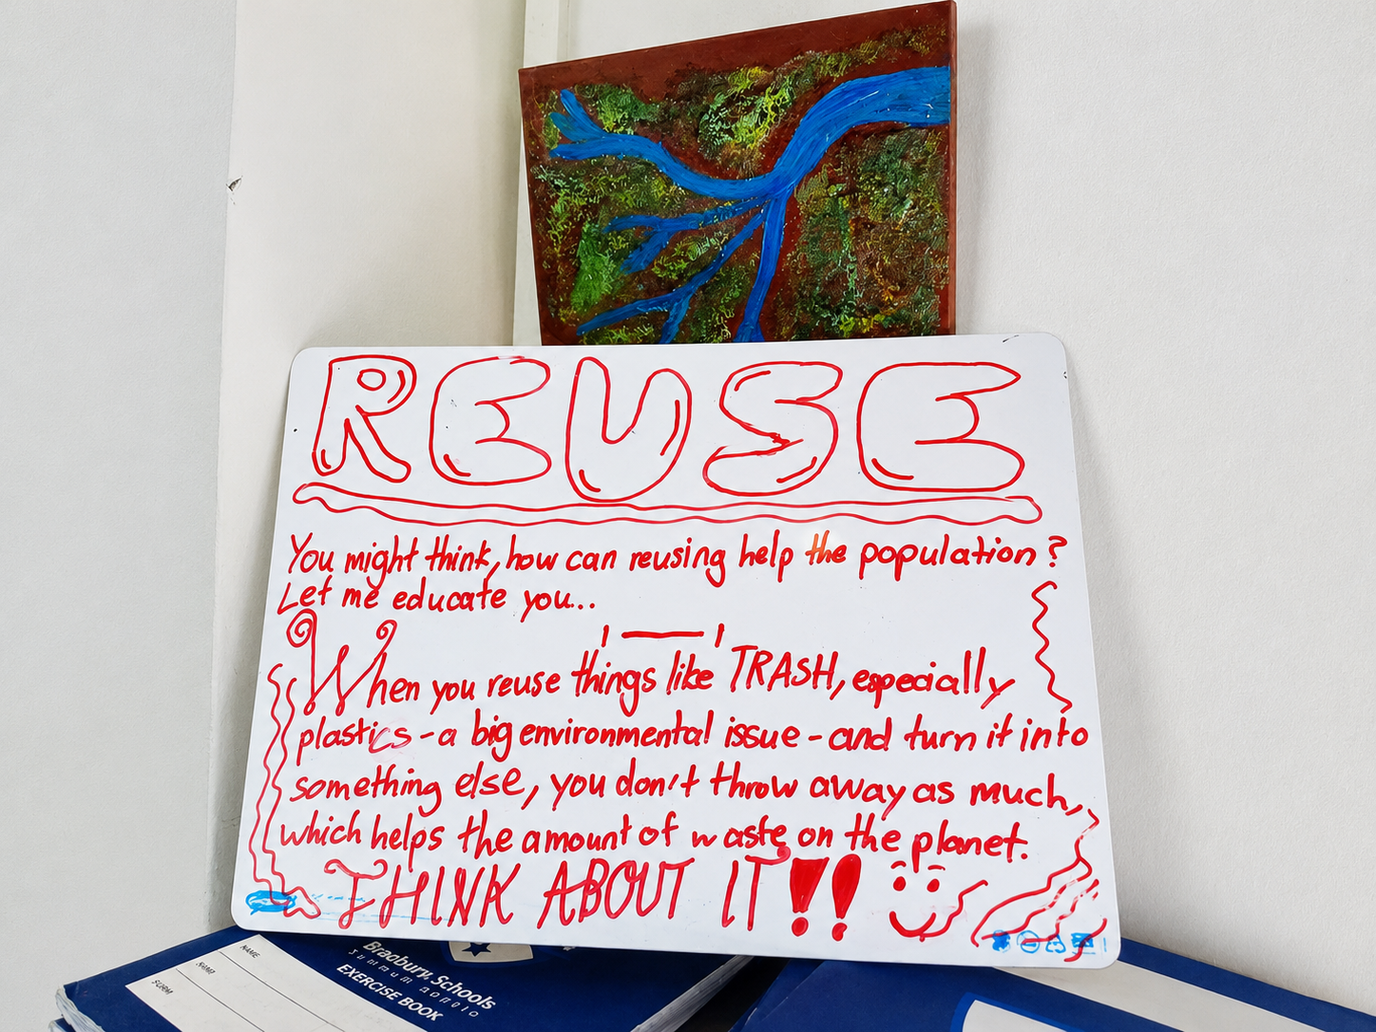 REUSE
You might think, how can reusing help the population?
Let me educate you...
When you reuse things like TRASH, especially
plastics - a big environmental issue - and turn it into
something else, you don't throw away as much,
which helps the amount of waste on the planet.
THINK ABOUT IT!!
NAME
SUBJ
FORM
Bradbury Schools
EXERCISE BOOK